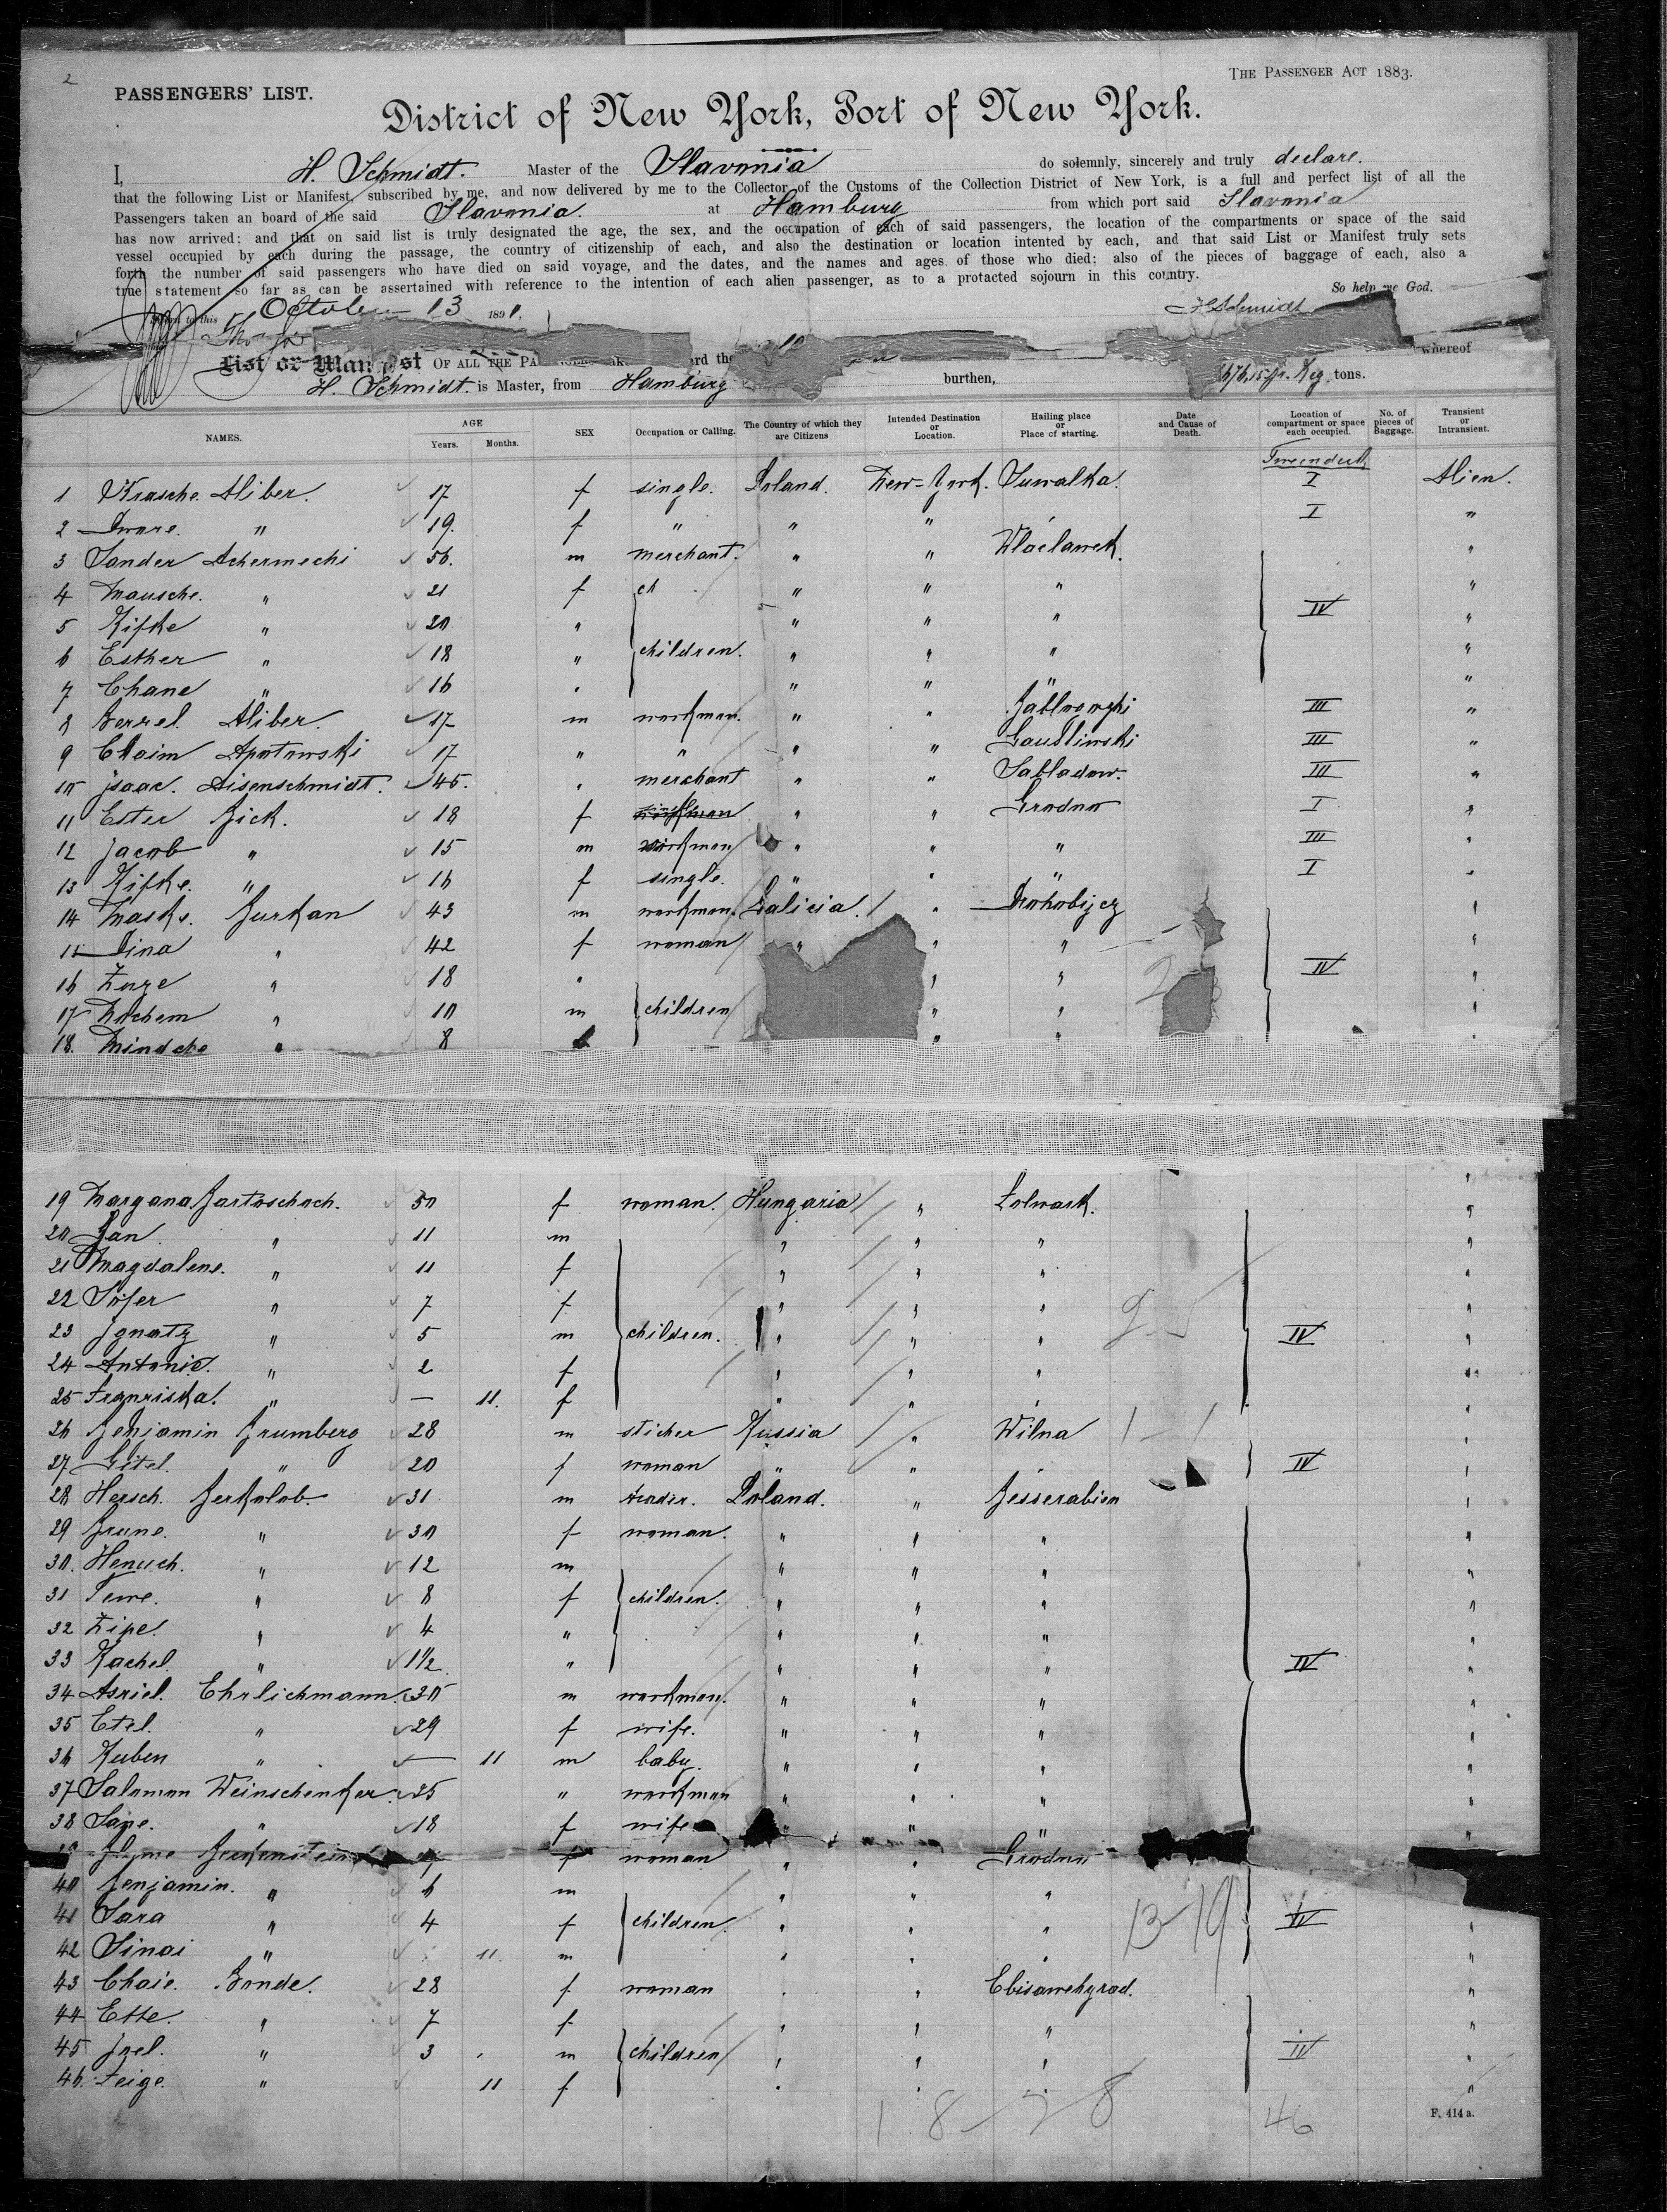 2
THE PASSENGER ACT 1883.
PASSENGERS' LIST.
District of New York, Port of New York.
I, H. Schmidt. Master of the Slavonia do solemnly, sincerely and truly declare.
that the following List or Manifest, subscribed by me, and now delivered by me to the Collector of the Customs of the Collection District of New York, is a full and perfect list of all the
Passengers taken an board of the said Slavonia. at Hamburg from which port said Slavonia
has now arrived; and that on said list is truly designated the age, the sex, and the occupation of each of said passengers, the location of the compartments or space of the said
vessel occupied by each during the passage, the country of citizenship of each, and also the destination or location intented by each, and that said List or Manifest truly sets
forth the number of said passengers who have died on said voyage, and the dates, and the names and ages of those who died; also of the pieces of baggage of each, also a
true statement so far as can be assertained with reference to the intention of each alien passenger, as to a protacted sojourn in this country.
So help me God.
to this October 13 1891. H. Schmidt
List or Manifest OF ALL THE PA rd the whereof
H. Schmidt. is Master, from Hamburg burthen, Reg. tons.
NAMES. AGE Years. Months. SEX Occupation or Calling. The Country of which they are Citizens Intended Destination or Location. Hailing place or Place of starting. Date and Cause of Death. Location of compartment or space each occupied. No. of pieces of Baggage. Transient or Intransient.
1 Krasche Aliber. 17 f single. Poland. New-York. Suwalka. I Alien.
2 Dware. " 19. f " " " I "
3 Sander Achermechi 56. m merchant. " " Wlaclawek. "
4 Mausche. " 21 f ch " " " "
5 Rifke " 20 " " " " IV "
6 Esther " 18 " children. " " " "
7 Chane " 16 " " " " "
8 Berrel. Aliber. 17 m workman. " " III "
9 Chaim Apotowski 17 " " " " Gaudlinski III "
10 Isaac. Aisenschmidt. 45. " merchant " " Sabladow. III "
11 Ester Bick. 18 f " " Grodno I "
12 Jacob " 15 m workman " " " III "
13 Rifke. " 16 f single. " " " I "
14 Masks. Burkan 43 m workman. Galicia. " Drohobijcz "
15 Dina " 42 f woman " " " "
16 Zuze " 18 " " " IV "
17 Nochem " 10 m children " " "
18. Mindche " 8 " " "
19 Margana Bartoschoch. 50 f woman. Hungaria " Folwark. "
20 Jan " 11 m " " " "
21 Magdalene. " 11 f " " " "
22 Sofer " 7 f " " " "
23 Ignatz " 5 m children. " " " IV "
24 Antonie. " 2 f " " " "
25 Franziska. " — 11. f " " " "
26 Benjamin Brumberg 28 m sticher Russia " Wilna 1 - 1 "
27 Gitel. " 20 f woman " " " IV "
28 Hersch. Berkolob. 31 m trader. Poland. " Besserabien "
29 Brune. " 30 f woman. " " " "
30. Henuch. " 12 m " " " "
31 Tewe. " 8 f children. " " " "
32 Zipe. " 4 " " " " "
33 Rachel. " 1½ " " " " IV "
34 Asriel. Ehrlichmann. 30 m workman. " " " "
35 Etel. " 29 f wife. " " " "
36 Ruben " — 11 m baby. " " " "
37 Salomon Weinschenker. 25 " workman " " " "
38 " 18 f wife " " " "
f woman " " Grodno
40 Benjamin. " 6 m " " "
41 Sara " 4 f children. " " " 13-19 IV "
42 Sinai " 11. m " " " "
43 Chaie. Bonde. 28 f woman " " Elisawehgrad. "
44 Ette. " 7 f " " " "
45 Joel. " 3 m children " " " IV "
46. Feige. " 11 f " " " "
1 8 - 28 46
F. 414 a.